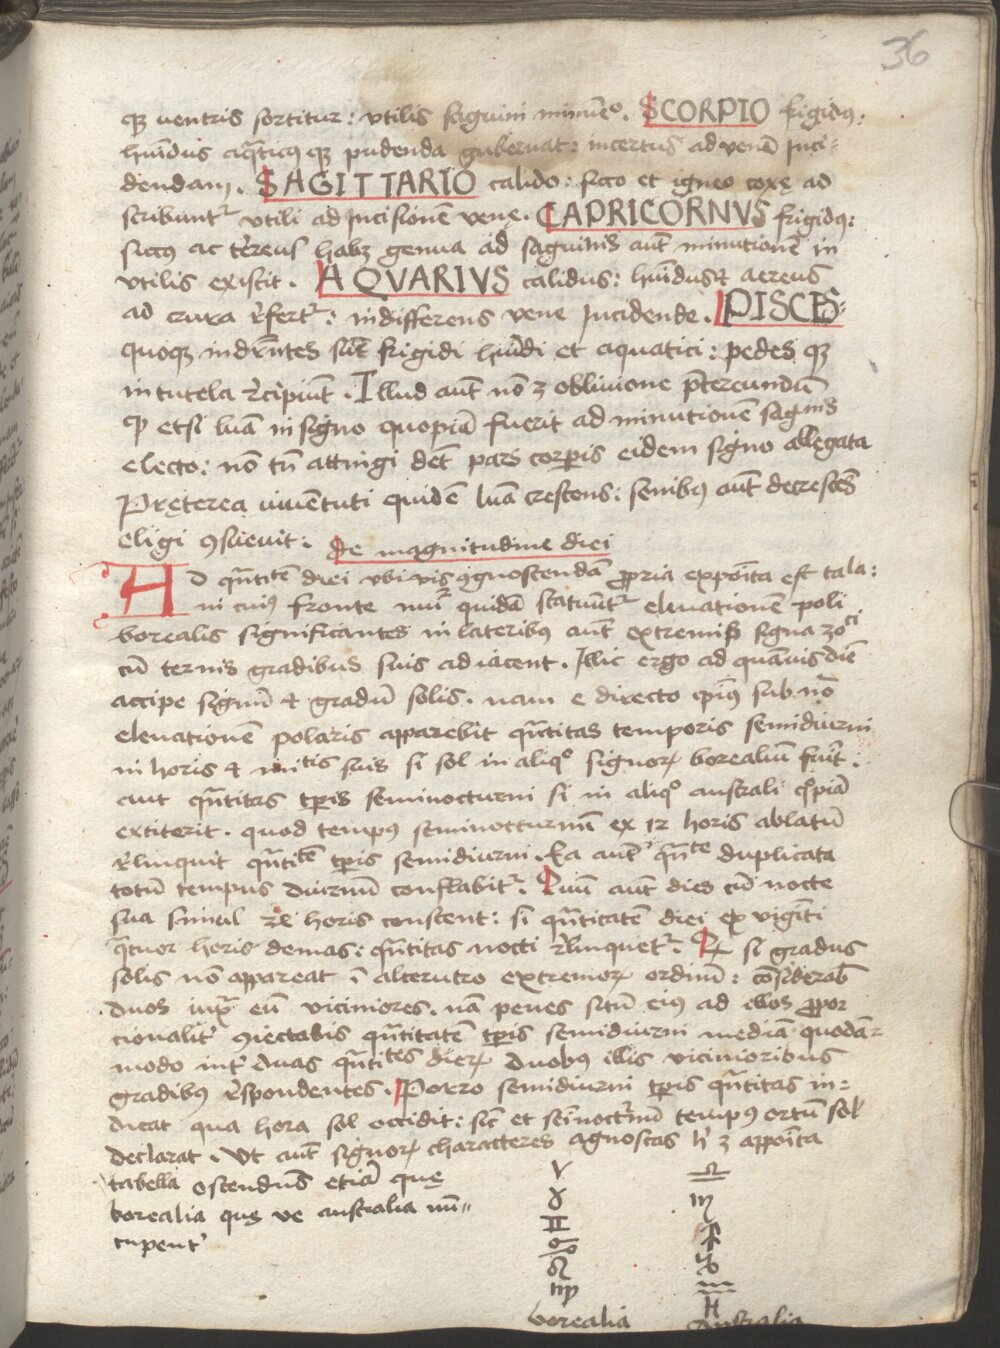 36
qȝ uentris sortitur: vtilis saguini minuēᵒ. SCORPIO frigidꝯ:
hūidus aq̄ticꝯ qȝ pudenda gubernat: incertus ad venā Inci-
dendam. SAGITTARIO calido: sicco et igneo coxę ad
scribuntᷣ vtili ad Incisionē vene. CAPRICORNVS frigidꝯ:
siccꝯ ac tēreus habȝ genua ad saguinis aūt minutionē in
vtilis existit. AQVARIVS calidus: hūidus & aereus
ad crura r̄fertᷣ: indifferens vene Incidende. PISCES:
quoqȝ indr̄ntes sūt frigidi hūidi et aquatici: pedes qȝ
in tutela r̄cipiūt. Illud aūt nō ȝ obliuione p̄tereundū
ꝙ etsi lūa in signo quopiā fuerit ad minutionē saguīs
electo: nō tn̄ attingi dēt pars corꝑis eidem signo allegata
Pręterea iuuētuti quidē lūa crescens: senibꝯ aūt decrescēs
eligi ꝯsueuit. De magnitudine diei
AD qn̄titē diei vbi vis ꝯgnoscendā ꝓpria exposita est tala:
in cuiꝯ fronte nūi quidā statuūtᷣ eleuationē poli
borealis significantes in lateribꝯ aūt extremis signa zoci
cū ternis gradibus suis adiacent. Illic ergo ad quāuis diē
accipe signū & gradū solis. nam e directo ipiꝯ sub nō
eleuationē polaris apparebit qn̄titas temporis semidiurni
in horis & mītis suis si sol in aliqᵒ signoꝝ borealiū fuīt.
aut qn̄titas tꝑis seminocturni si in aliqᵒ australi qͦpiā
extiterit. quod tempꝯ seminocturnū ex 12 horis ablatū
r̄linquit qn̄titē tꝑis semidiurni. Ea aūt qn̄te duplicata
totū tempus diurnū conflabitᷣ. Cum aūt dies cū nocte
sua simul 24 horis constent: si qn̄titatē diei ex viginti
q̄tuor horis demas: qn̄titas nocti r̄linquetᷣ. Qͩ si gradus
solis nō appareat ī alterutro extremoꝝ ordinū: cōsiderab
duos iuxͣ eū viciniores. nā penes sitū eiꝯ ad illos ꝓpor
cionalit̓ ꝯiectabis qn̄titatē tꝑis semidiurni mediā quodā-
modo int̓ duas qn̄tites dieꝝ duobꝯ illis vicinioribus
gradibꝯ r̄spondentes. Porro semidiurni tꝑis qn̄titas in-
dicat qua hora sol occidit: sic̄ et seīnoct̓nū tempꝯ ortū sol
declarat. Vt aūt signoꝝ characteres agnoscas h̓ ȝ apposita
tabella ostendens etiā quę
borealia quę ve australia nū-
cupent̓
♈ ♎
♉ ♏
♊ ♐
♋ ♑
♌ ♒
♍ ♓
borealia Australia